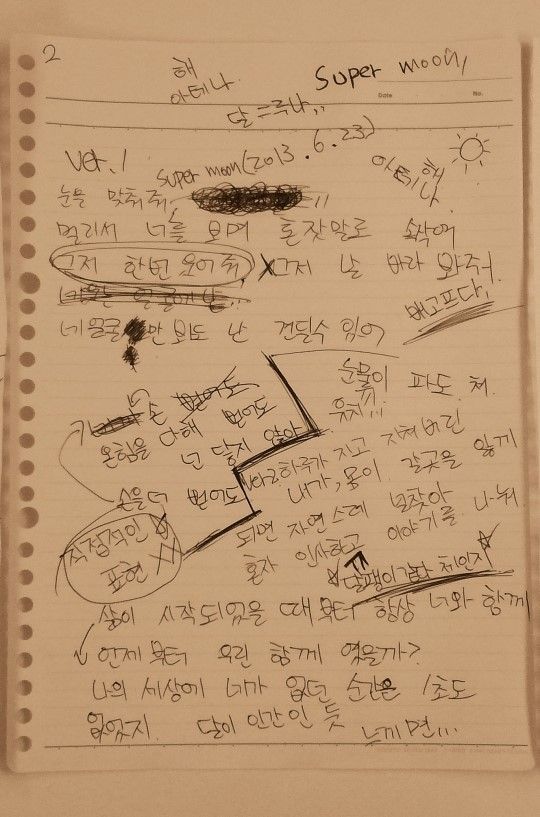 2
해
아테나.
Super moon,
Date
No.
달=루나..
Ver. 1
Super moon(2013.6.23)
아테나 해
눈을 맞춰줘,
멀리서 너를 보며 혼잣말로 속삭여
그저 한번 웃어줘, X그저 날 바라 봐줘.
배고프다,
네 얼굴만 봐도 난 견딜수 있어
눈물이 파도 쳐.
유치!!!
손 뻗어도
온힘을 다해 뻗어도
넌 닿지 않아
손을 더 뻗어도
하루가 지고 지쳐버린
내가, 몸이 갈곳을 잃게
되면 자연스레 널찾아
혼자 인사하고 이야기를 나눠
직접적인
표현 XX
☆달팽이같다 체인지☆
삶이 시작되었을 때부터 항상 너와 함께
언제부터 우린 함께 였을까?
나의 세상에 네가 없던 순간은 1초도
없었지. 달이 인간인 듯 느끼면...